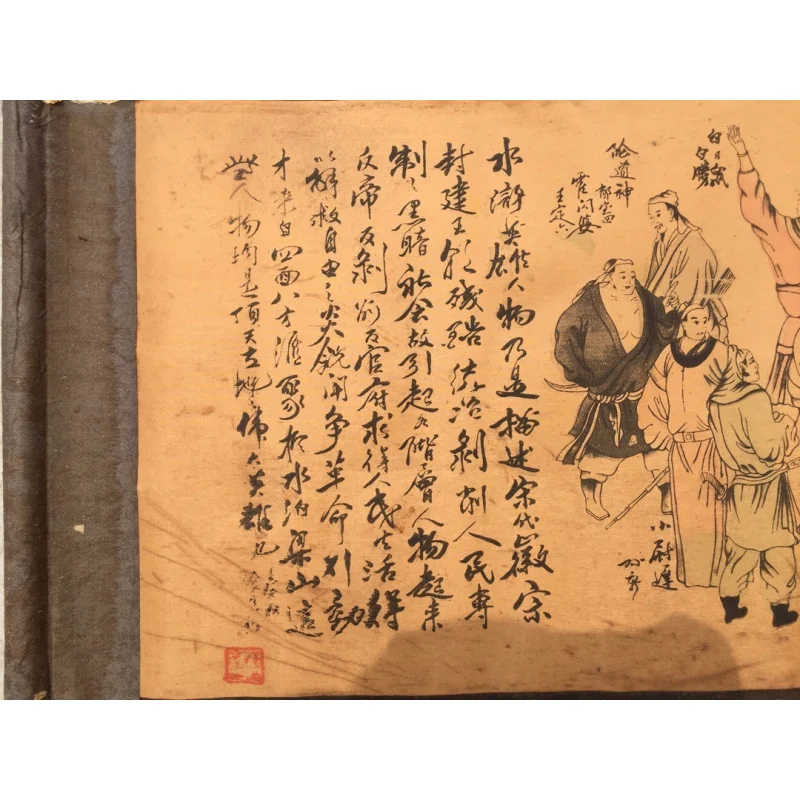 白日鼠
白勝
險道神
霍闪婆
王定六
小尉遲
孙新
水滸英雄人物乃是描述宋代徽宗
封建王朝殘酷統治剝削人民專
制之黑暗社會故引起各階層人物起来
反帝反剝削反官府求得人民生活得
以解救自由之火銳鬥争革命行動
才来自四面八方滙聚於水泊梁山這
些人物均是頂天立地偉大英雄也